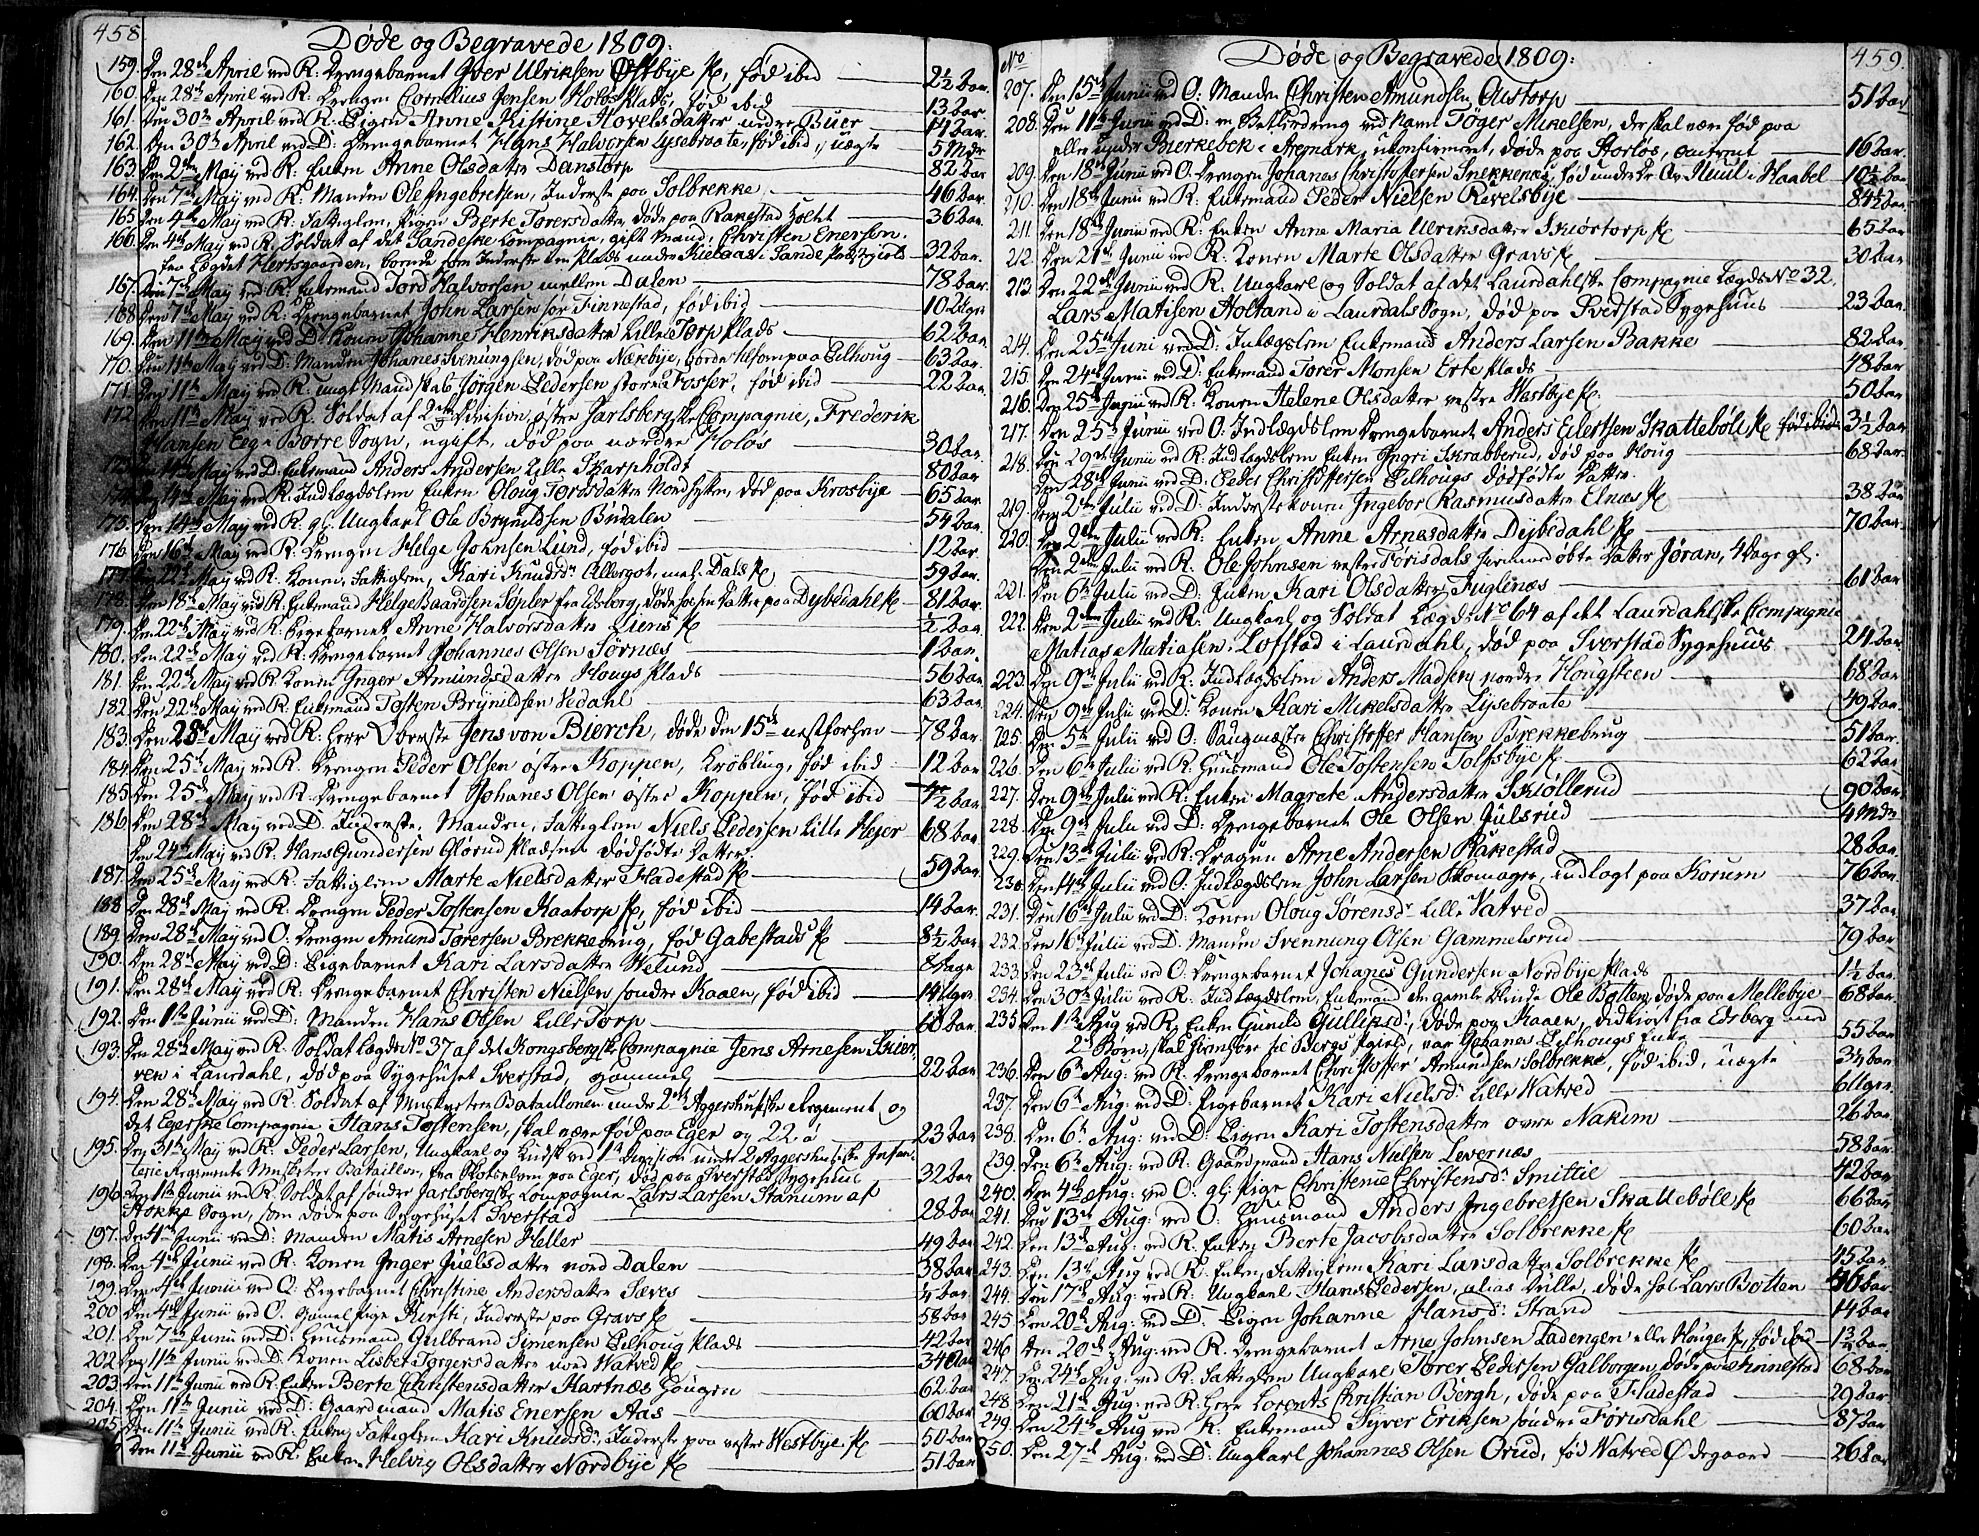 458
Døde og Begravede 1809.
159. Den 28de April ved R: Drengebarnet Iver Ulriksen Østbye pl, fød ibid — 2½ Aar.
160. Den 28de April ved R: Drengen Cornelius Jensen Holøs Plads, fød ibid — 13 Aar
161. Den 30te April ved R: Pigen Anne Kistine Hovelsdatter nedre Buer — 14 Aar.
162. Den 30te April ved D: Drengebarnet Hans Halvorsen Lysebraate, fød ibid, uægte — 5 Mdr
163. Den 2den May ved R: Enken Anne Olsdatter Danstorp — 82 Aar
164. Den 7de May ved R: Manden Ole Ingebretsen, Inderste paa Solbrekke — 46 Aar.
165. Den 4de May ved R: Fattiglem, Pigen Berte Torersdatter, døde paa Rakestad — 36 Aar.
166. Den 4de May ved R. Soldat af det Sandeske Compagnie, gift Mand, Christen Enersen.
fra Lægdet Hertsgaarden, boende som Inderste Plads under Kielaas i Sande — 32 Aar.
167. Den 7de May ved R. Enkemand Tord Halvorsen mellem Dalen — 78 Aar.
168. Den 7de May ved R: Drengebarnet John Larsen sør Finnestad, fød ibid — 10 Uger
169. Den 11te May ved D: Konen Johanne Henriksdatter Lille Torp Plads — 62 Aar.
170. Den 11te May ved D: Manden Johanes Svenungsen, død paa Nærbye — 63 Aar.
171. Den 11te May ved R: unge Mandskab Jørgen Pedersen store Fosser, fød ibid — 22 Aar.
172. Den 11te May ved R. Soldat af 2den Division østre Jarlsbergske Compagnie, Frederik
Hansen Eeg i Borre Sogn, ugift, død paa nordre Holøs — 30 Aar.
173. Den May ved D: Enkemand Anders Andersen Lille Skarpholdt — 80 Aar
174. Den 14de May ved R: Indlægdslem Enken Oloug Tordsdatter, død paa Krosbye — 65 Aar.
175. Den 14de May ved R. gl. Ungkarl Ole Brynildsen Bødalen — 54 Aar.
176. Den 16de May ved R: Drengen Helge Johnsen Lund, fød ibid — 12 Aar.
177. Den 22de May ved R: Konen, Fattiglem, Kari Knudsdr Allergot, mel. Dals pl — 59 Aar.
178. Den 18de May ved R: Enkemand Helge Baardsen Søpler fra Edsberg, døde paa Dybedahl pl — 81 Aar.
179. Den 22de May ved R: Pigebarnet Anne Halvorsdatter Liens pl — ½ Aar.
180. Den 22de May ved R: Drengebarnet Johannes Olsen Tørnæs — 1 Aar.
181. Den 22de May ved R: Konen Inger Amundsdatter Hougs Plads — 56 Aar
182. Den 22de May ved R: Enkemand Tosten Brynildsen Vedahl — 63 Aar.
183. Den 23de May ved R: Herr Oberste Jens von Bierch, døde den 15de næstforhen — 78 Aar.
184. Den 25de May ved R. Drengen Peder Olsen østre Koppen, Krøbling, fød ibid — 12 Aar
185. Den 25de May ved R. Drengebarnet Johanes Olsen østre Koppen, fød ibid — Aar
186. Den 28de May ved D. Inderste, Manden, Fattiglem Niels Pedersen Lille Heyer — 68 Aar.
Den 24de May ved R: Hans Gundersen Glørud Pladsens dødfødte Datter
187. Den 25de May ved R: Fattiglem Marte Nielsdatter Fladestad pl — 59 Aar.
188. Den 28de May ved R: Drengen Peder Tostensen Kaatorp pl, fød ibid — 14 Aar.
189. Den 28de May ved O: Drengen Amund Torersen Brekkebrug, fød Gabestads pl — 8½ Aar
190. Den 28de May ved D: Pigebarnet Kari Larsdatter Welund — 8 Dage
191. Den 28de May ved R: Drengebarnet Christen Nielsen søndre Kaaen, fød ibid — 14 Uger
192. Den 1te Junii ved D: Manden Hans Olsen Lille Torp — 60 Aar.
193. Den 28de May ved R: Soldat Lægds No 37 af det Kongsbergske Compagnie Jens Arnesen Skier
ven i Laurdahl, død paa Sygehuset Sverstad, gammel — 22 Aar
194. Den 28de May ved R. Soldat af Musqueteer Bataillonen under 2det Aggershusiske Regiment og
det Egerske Compagnie Hans Tostensen, skal være fød paa Eger og 22 à — 23 Aar
195. Den 31te May ved R: Peder Larsen, Ungkarl og Kudsk ved 1te Division under 2 Aggershusiske Infan-
terie Regiments Musqueteer Bataillon, fra Skotselven paa Eger, død paa Sverstad Sygehuus — 32 Aar
196. Den 1te Junii ved R. Soldat af søndre Jarlsbergske Compagnie Lars Larsen Stanum af
Stokke Sogn, som døde paa Sygehuset Sverstad — 28 Aar
197. Den 4de Junii ved D: Manden Matis Arnesen Heller — 49 Aar
198. Den 4de Junii ved R: Konen Inger Juelsdatter nord Dalen — 38 Aar
199. Den 4de Junii ved O: Pigebarnet Christine Andersdatter Sæves — Aar
200. Den 4de Junii ved O. Gammel Pige Kirsti, Inderste paa Gravs pl — 58 Aar
201. Den 7de Junii ved D: Huusmand Gulbrand Simensen Eilhoug Plads — 42 Aar
202. Den 11te Junii ved D: Konen Lisbet Torgersdatter nord Watved pl — 34 Aar
203. Den 11te Junii ved R: Enken Berte Christensdatter Hartnæs Hougen — 62 Aar
204. Den 11te Junii ved D: Gaardmand Matis Enersen Aas — 60 Aar
205. Den 11te Junii ved R: Enken, Fattiglem Kari Knudsdr, Inderste paa vestre Westbye pl — 50 Aar
Den 11te Junii ved R: Enken Helvig Olsdatter Nordbye pl — 51 Aar
459.
Døde og Begravede 1809.
No
207. Den 15de Junii ved O: Manden Christen Amundsen Oustorp — 51 Aar
208. Den 11te Junii ved D: en Betlerdreng ved Navn Tøger Mikelsen, der skal være fød paa
eller under Bierkebek i Aremark, ukonfirmeret, døde paa Storløs — 16 Aar.
209. Den 18de Junii ved O: Drengen Johanes Christophersen Snekkenæs, fød — 10½ Aar
210. Den 18de Junii ved R: Enkemand Peder Nielsen Røvelsbye — 84½ Aar.
211. Den 18de Junii ved R: Enken Anne Maria Ulriksdatter Skiøstorp pl — 65 Aar
212. Den 21de Junii ved R: Konen Marte Olsdatter Gravs pl — 30 Aar
213. Den 22de Junii ved R: Ungkarl og Soldat af det Laurdahlske Compagnie Lægds No 32.
Lars Matisen Holtand i Laurdals Sogn, død paa Sverstad Sygehuus — 23 Aar.
214. Den 25de Juni ved D: Inlægslem Enkemand Anders Larsen Bakke — 82 Aar.
215. Den 24de Junii ved D: Enkemand Torer Monsen Erte Plads — 48 Aar
216. Den 25de Junii ved R: Konen Helene Olsdatter vestre Westbye pl. — 50 Aar
217. Den 25de Junii ved O: Indlægdslem Drengebarnet Anders Eilertsen Skattebøll pl fød ibid — 3½ Aar
218. Den 29de Junii ved R: Indlægdslem Enken Ingri Skrabberud, død paa Houg — 68 Aar.
Den 28de Junii ved D: Peder Christoffersen Eilhougs dødfødte Datter.
219. Den 2den Julii ved D: Inderstekonen Ingebor Rasmusdatter Elnes pl — 38 Aar
220. Den 2den Julii ved R: Enken Anne Arnesdatter Dybedahl pl — 70 Aar.
Den 2den Julii ved R. Ole Johnsen vestre Tørisdals hiemmedøbte Datter Jøran, 4 Dage gl.
221. Den 6te Julii ved D: Enken Kari Olsdatter Fuglenæs — 61 Aar
222. Den 2den Julii ved R: Ungkarl og Soldat Lægds No 64 af det Laurdahlske Compagnie
Matias Matiasen Lofstad i Laurdahl, død paa Sverstad Sygehuus — 24 Aar.
223. Den 9de Julii ved R: Indlægdslem Anders Madsen nordre Hougsteen — 68 Aar
224. Den 9de Julii ved D: Konen Kari Mikelsdatter Lysebraate — 49 Aar
225. Den 5te Julii ved O: Saugmester Christoffer Hansen Brekkebrug — 51 Aar.
226. Den 6te Julii ved R: Huusmand Ole Tostensen Tolfsbye pl — 62 Aar
227. Den 9de Julii ved R: Enken Magrete Andersdatter Skiøllerud — 90 Aar
228. Den 9de Julii ved D: Drengebarnet Ole Olsen Julsrud — 4 Mdr
229. Den 13de Julii ved R: Dragun Arne Andersen Rakestad — 28 Aar.
230. Den 14de Julii ved O: Indlægdslem John Larsen Skomager, indlagt paa Korum — 76 Aar
231. Den 16de Julii ved D: Konen Oloug Sørensdr Lille Vatved — 37 Aar
232. Den 16de Julii ved D: Manden Svennung Olsen Gammelsrud — 79 Aar
233. Den 23de Julii ved O: Drengebarnet Johanes Gundersen Nordbye Plads — 1½ Aar.
234. Den 30te Julii ved R: Indlægdslem, Enkemand den gamle blinde Ole Botten, døde paa Mellebye — 68 Aar
235. Den 1te Aug ved R: Enken Gunild Gulliksdr, døde paa Kaaen, didkiørt fra Edsberg med
2 Børn, skal hiemhøre til Bergs Pgield, var Johanes Lilhougs Enke — 55 Aar
236. Den 6te Aug: ved R: Drengebarnet Christoffer Amundsen Solbrekke, fød ibid, uægte — Aar
237. Den 6te Aug: ved D: Pigebarnet Kari Nielsdr Lille Watved — 6 Uger.
238. Den 6te Aug: ved D: Pigen Kari Tostensdatter øvre Nakim — 26 Aar
239. Den 6te Aug: ved R: Gaardmand Hans Nielsen Levernæs — 58 Aar
240. Den 4de Aug: ved O: gl: Pige Christenie Christensdr Smittie — 42 Aar
241. Den 13de Aug: ved O: Huusmand Anders Ingebretsen Skattebøll pl — 66 Aar
242. Den 13de Aug: ved R. Enken Berte Jacobsdatter Solbrekke pl — 60 Aar
243. Den 13de Aug ved R: Enken, Fattiglem Kari Larsdatter Solbrekke pl — 45 Aar
244. Den 17de Aug: ved R: Ungkarl Hans Pedersen, alias Lille, døde hos Lars Botten — Aar
245. Den 20de Aug: ved D: Pigen Johanne Hansdr Strand — 14 Aar
246. Den 20de Aug: ved R. Drengebarnet Arne Johnsen Ladengen eller Houger pl, fød ibid — Aar
247. Den 24de Aug: ved R. Fattiglem Ungkarl Torer Pedersen Galborgen, døde paa Finnestad — 68 Aar
248. Den 21de Aug: ved R: Herr Lorents Christian Bergh, døde paa Fladestad — 29 Aar
249. Den 24de Aug ved R: Enkemand Syver Eriksen søndre Tørisdahl — 87 Aar
250. Den 27de Aug: ved D: Ungkarl Johannes Olsen Orud, fød Watved Ødegaard — 26 Aar